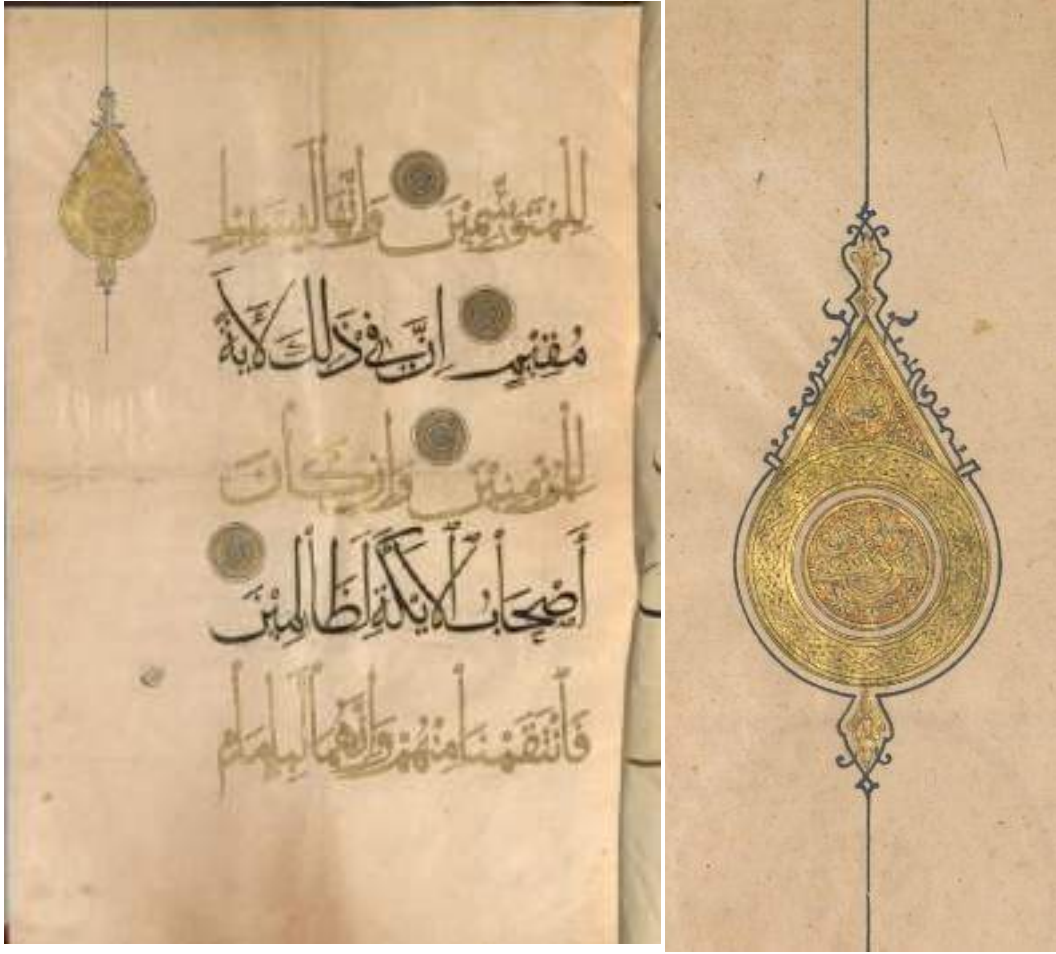 لِلْمُتَوَسِّمِيْنَ وَاِنَّهَا لَبِسَبِيْلٍ
مُقِيْمٍ اِنَّ فِي ذَلِكَ لَأَيَةً
لِلْمُؤْمِنِيْنَ وَاِنْ كَانَ
أَصْحَابُ الْاَيْكَةِ لَظَالِمِيْنَ
فَانْتَقَمْنَا مِنْهُمْ وَاِنَّهُمَا لَبِاِمَامٍ